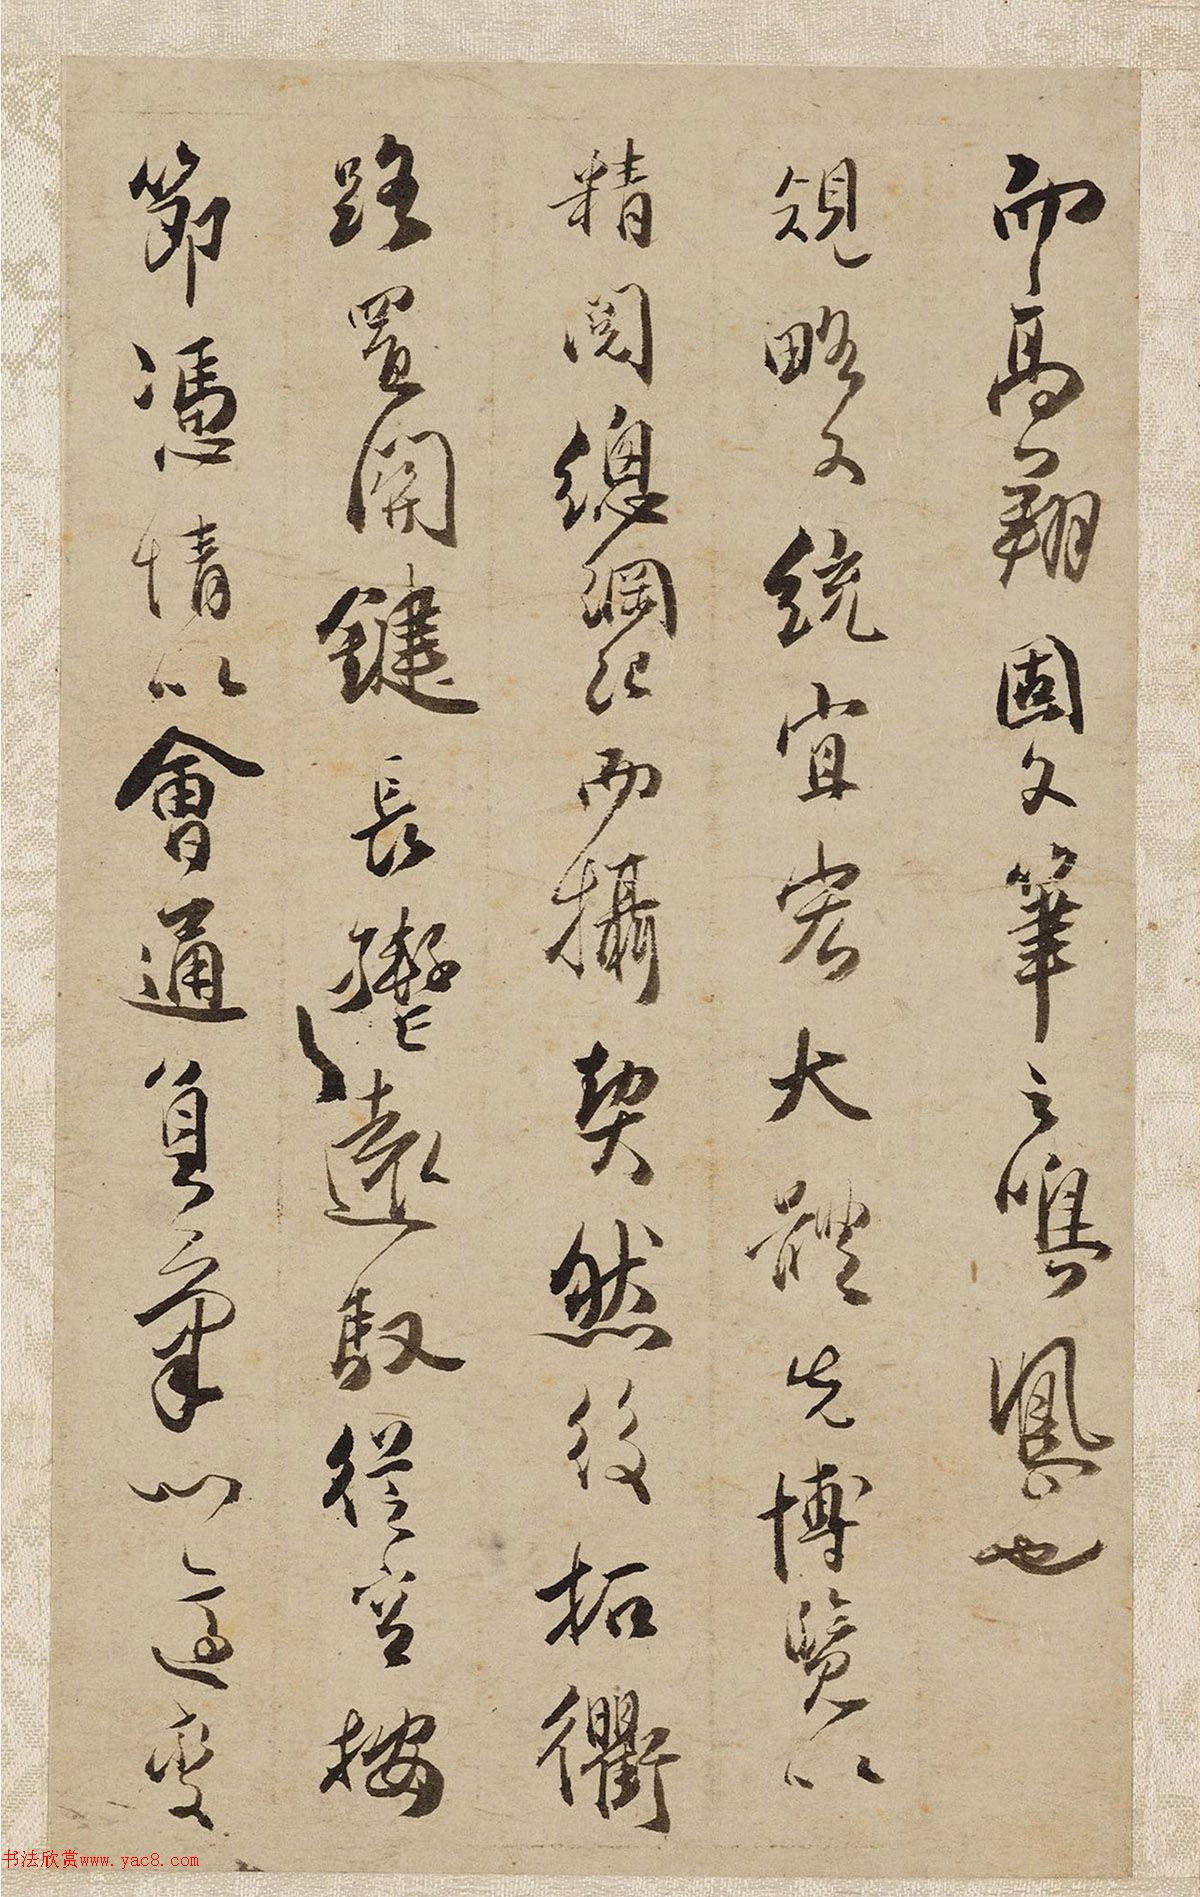 而高翔固文筆之鳴鳳也
規略文統宜宏大體先博覽以
精閱總綱紀而攝契然後拓衢
路置關鍵長轡遠馭從容按
節憑情以會通負氣以適變
书法欣赏www.yac8.com